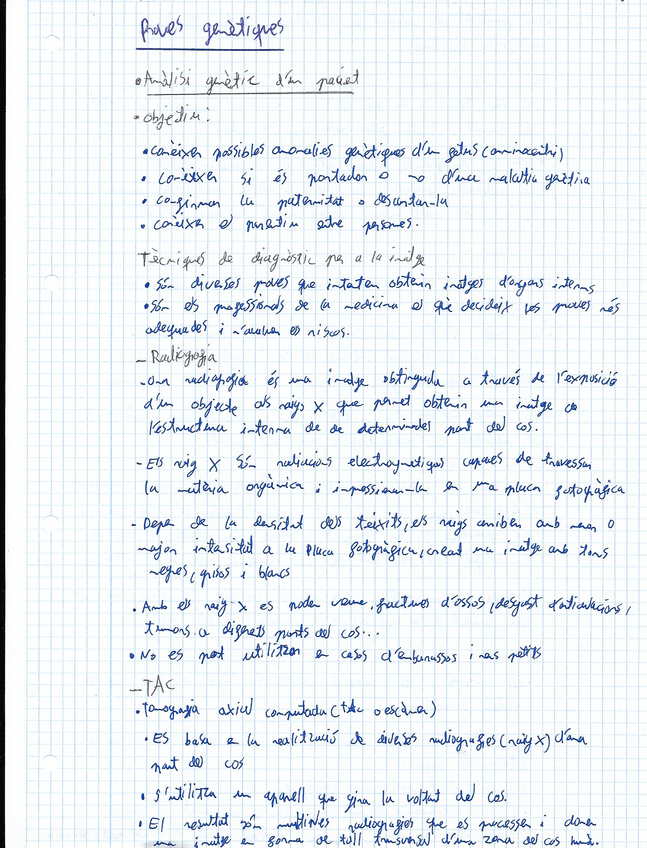 Proves genètiques
• Anàlisi genètic d'un pacient
• Objectiu:
• conèixer possibles anomalies genètiques d'un fetus (amniocentesi)
• conèixer si és portador o no d'una malaltia genètica
• confirmar la paternitat o descartar-la
• conèixer el parentiu entre persones.
Tècniques de diagnòstic per a la imatge
• Són diverses proves que intaten obtenir imatges d'òrgans interns
• Són els professionals de la medicina el què decideix les proves més
adequades i n'avaluen els riscos.
- Radiografia
- Una radiografia és una imatge obtinguda a través de l'exposició
d'un objecte als raigs X que permet obtenir una imatge de
l'estructura interna de de determinades part del cos.
- Els raig X són radiacions electromagnetiques capaces de travessar
la matèria orgànica i impressionar-la en una placa fotogràfica
- Depen de la densitat dels teixits, els raigs arriben amb menor o
major intensitat a la placa fotogràfica, creant una imatge amb tons
negres, grisos i blancs
• Amb els raig X es poden veure, fractures d'ossos, desgast d'articulacions,
tumors a diferents parts del cos...
• No es pot utilitzar en casos d'embarassos i nens petits
- TAC
• Tomografia axial computada (TAC o escàner)
• Es basa en la realització de diverses radiografies (raig X) d'una
part del cos
• S'utilitza un aparell que gira la voltant del cos.
• El resultat són multiples radiografies que es processen i donen
una imatge en forma de tall transversal d'una zona del cos humà.